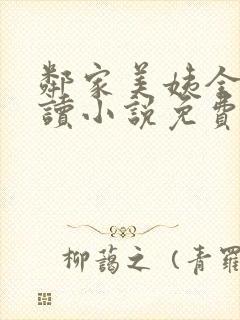 鄰家美姨全
讀小說免費
柳藹之（青羅